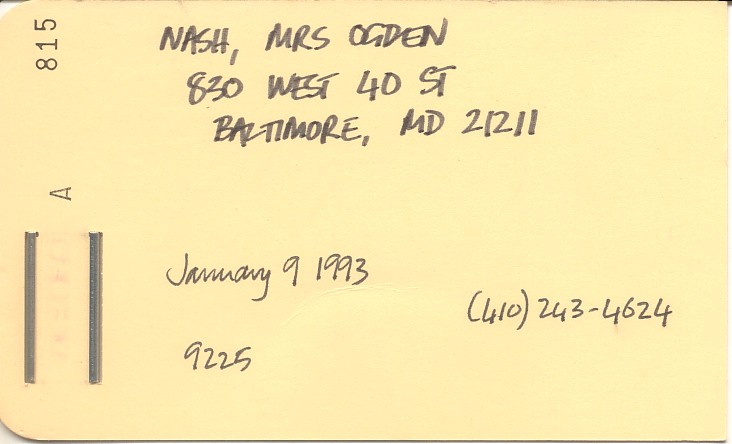 815
A
NASH, MRS OGDEN
830 WEST 40 ST
BALTIMORE, MD 21211
January 9 1993
(410) 243-4624
9225